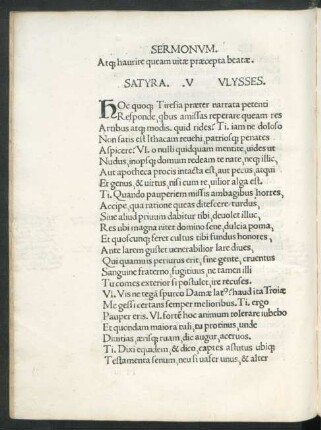 SERMONVM.
Atq; haurire queam uitæ præcepta beatæ.
SATYRA. V VLYSSES.
HOc quoq; Tiresia præter narrata petenti
Responde, qbus amissas reperare queam res
Artibus atq; modis. quid rides? Ti. iam ne doloso
Non satis est Ithacam reuehi, patriosq; penates
Aspicere? Vl. o nulli quidquam mentite, uides ut
Nudus, inopsq; domum redeam te uate, neq; illic,
Aut apotheca procis intacta est, aut pecus, atqui
Et genus, & uirtus, nisi cum re, uilior alga est.
Ti. Quando pauperiem missis ambagibus horres,
Accipe, qua ratione queas ditescere. turdus,
Siue aliud priuum dabitur tibi, deuolet illuc,
Res ubi magna nitet domino sene, dulcia poma,
Et quoscunq; feret cultus tibi fundus honores,
Ante larem gustet uenerabilior lare diues,
Qui quamuis periurus erit, sine gente, cruentus
Sanguine fraterno, fugitiuus, ne tamen illi
Tu comes exterior si postulet, ire recuses.
Vl. Vis ne tegã spurco Damæ lat9? haud ita Troiæ
Me gessi certans semper melioribus. Ti. ergo
Pauper eris. Vl. fortẽ hoc animum tolerare iubebo
Et quondam maiora tuli, tu protinus, unde
Diuitias, ærisq; ruam, dic augur, aceruos.
Ti. Dixi equidem, & dico, captes astutus ubiq;
Testamenta senum, neu si uafer unus, & alter